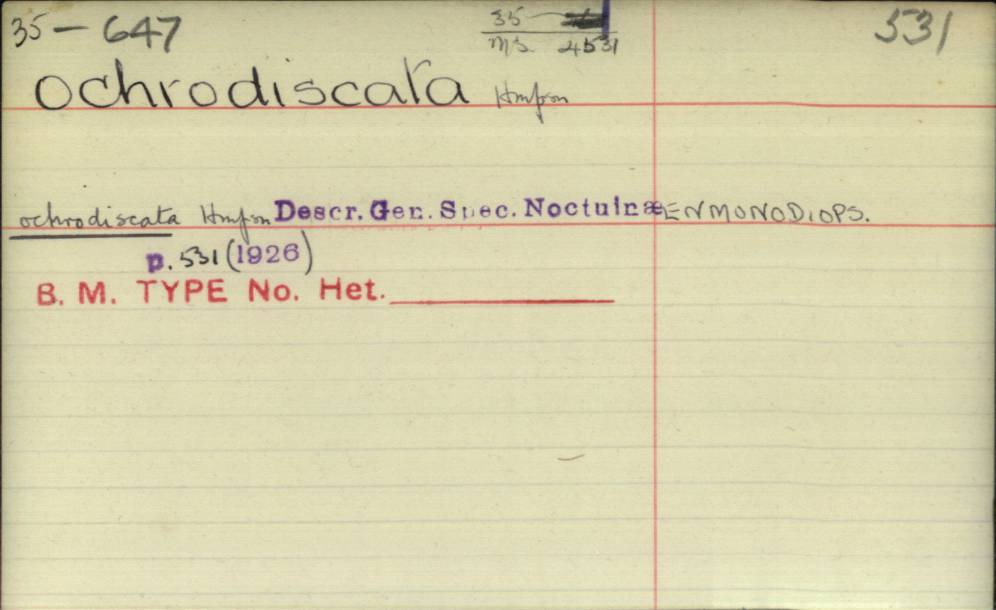 35 — 647
35
MS 4531
531
ochrodiscata Hmpsn
ochrodiscata Hmpsn Descr. Gen. Spec. Noctuinæ ENMONODIOPS.
p. 531 (1926)
B. M. TYPE No. Het.